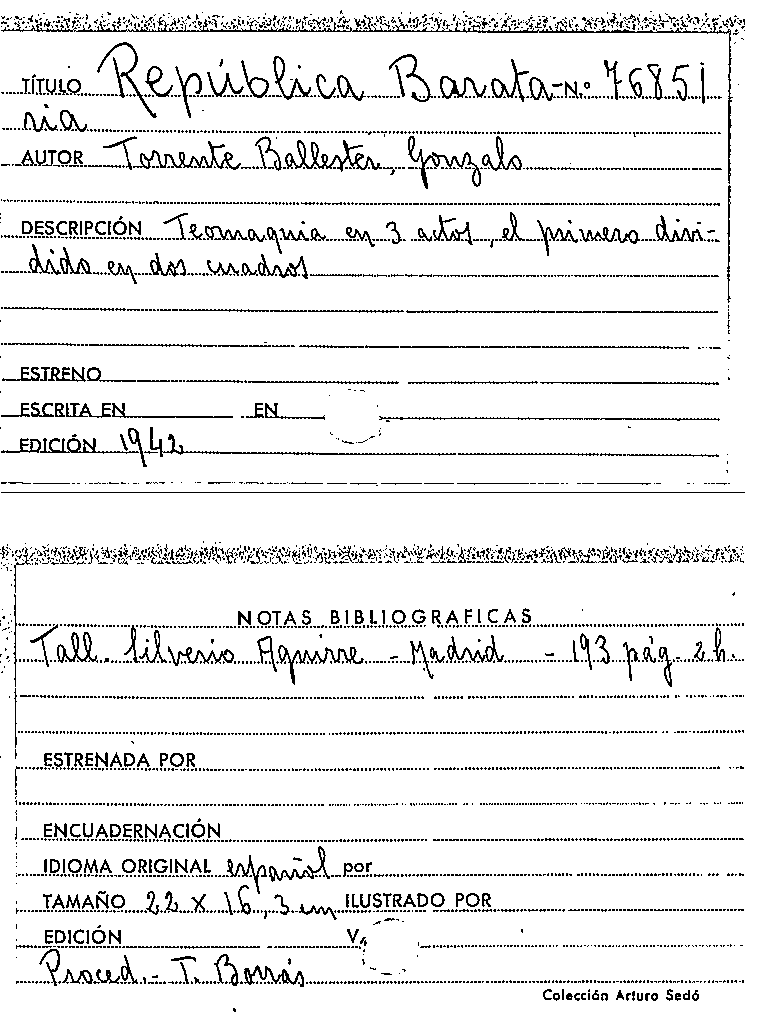 TÍTULO República Barata- N.º 76851
ria
AUTOR Torrente Ballester, Gonzalo
DESCRIPCIÓN Teomaquia en 3 actos, el primero divi-
dido en dos cuadros
ESTRENO
ESCRITA EN EN
EDICIÓN 1942
NOTAS BIBLIOGRAFICAS
Tall. Silverio Aguirre - Madrid - 193 pág. 2 h.
ESTRENADA POR
ENCUADERNACIÓN
IDIOMA ORIGINAL español por
TAMAÑO 22 X 16,3 cm ILUSTRADO POR
EDICIÓN V.
Proced.- T. Borrás
Colección Arturo Sedó